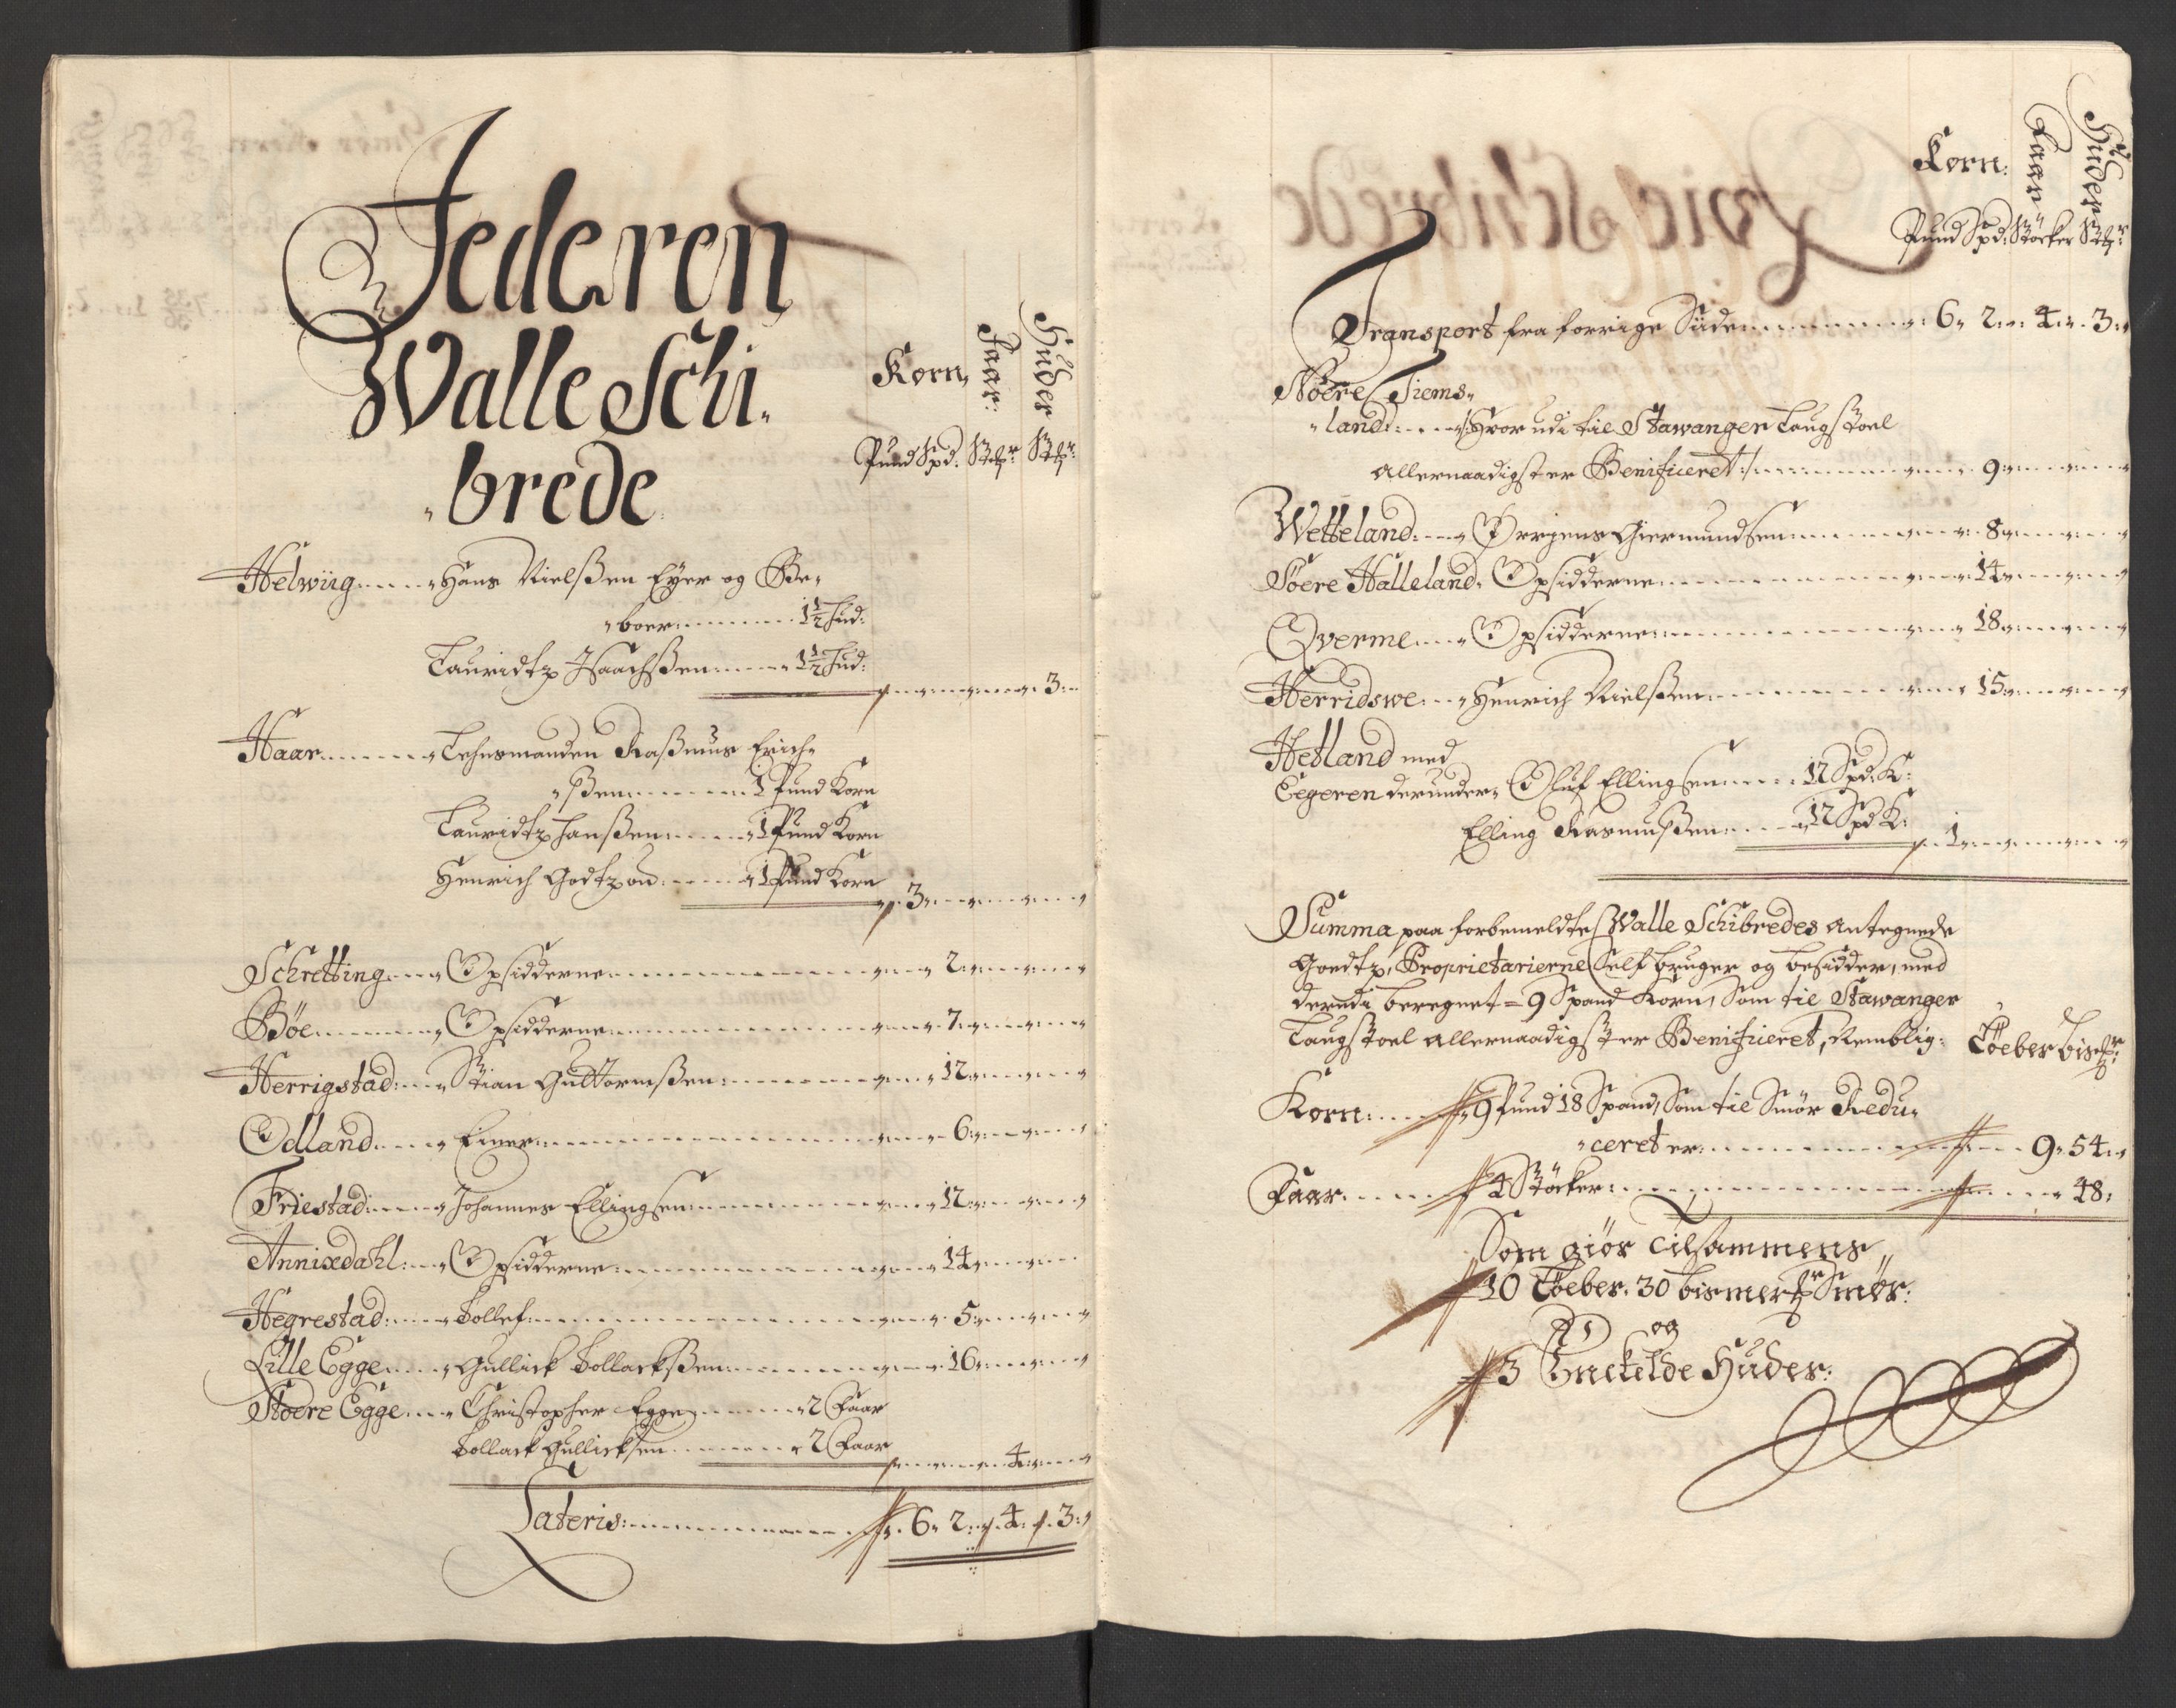 Jederen
Walle Schi-
brede
Korn, Faar: Huder
Pund Spd: Stkr Stkr:
Helwiig..... Hans Nielßen Eÿer og Be-
boer:........ 1½ Hud:
Lauridtz Isaachßen..... 1½ Hud:
3
Haar....... Lehnsmanden Raßmus Erich-
ßen........ 1 Pund Korn
Lauridtz Hanßen:..... 1 Pund Korn
Henrich Godtzon:.... 1 Pund Korn
3
Schretting... Opsidderne........ 2
Böe....... Opsidderne........ 7
Herrigstad:... Stian Guttormßen:........ 12
Odland.... Einer:........ 6
Friestad:.... Johannes Ellingsen........ 12
Annixdahl:... Opsidderne:........ 14
Hegrestad:.... Tollef:........ 5
Lille Egge..... Gullick Tollackßen........ 16
Stoere Egge.... Christopher Egge....... 2 Faar
Tollack Gullicksen........ 2 Faar
4
Lateris:........ 6 2: 4: 3:
Korn: Faar Huder
Pund Spd: Stöcker Stkr:
Transport fra forrige Siide........ 6 2: 4: 3:
Nöere Tiems-
land:.... /: Hvor udi til Stawanger Laugstoel
allernaadigst er Benificeret :/........ 9
Wetteland:... Örrjens Giermundsen........ 8
Söere Halleland: Opsidderne........ 14
Qverme.... Opsidderne........ 18
Herridswe... Henrich Nielßen........ 15
Hetland med
Eegeren derunder, Oluf Ellingsen..... 12 Spd: K:
Elling Rasmusßen:..... 12 Spd K:
1
Summa paa forbemeldte Walle Schibredes antegnede
Goedtz, Proprietarierne Self bruger og besidder, med
derudi beregnet = 9 Spand Korn, Som til Stawanger
Laugstoel allernaadigst er Benificeret, Nemblig: Löeber bismr:
Korn:.... 9 Pund 18 Spand, Som til Smör Redu-
ceret er........ 9 54
Faar...... 4 Stöcker:........ 48:
Som giör tilsammens
10 Löeber: 30 bismerr Smör:
og
3 Enckelde Huder: